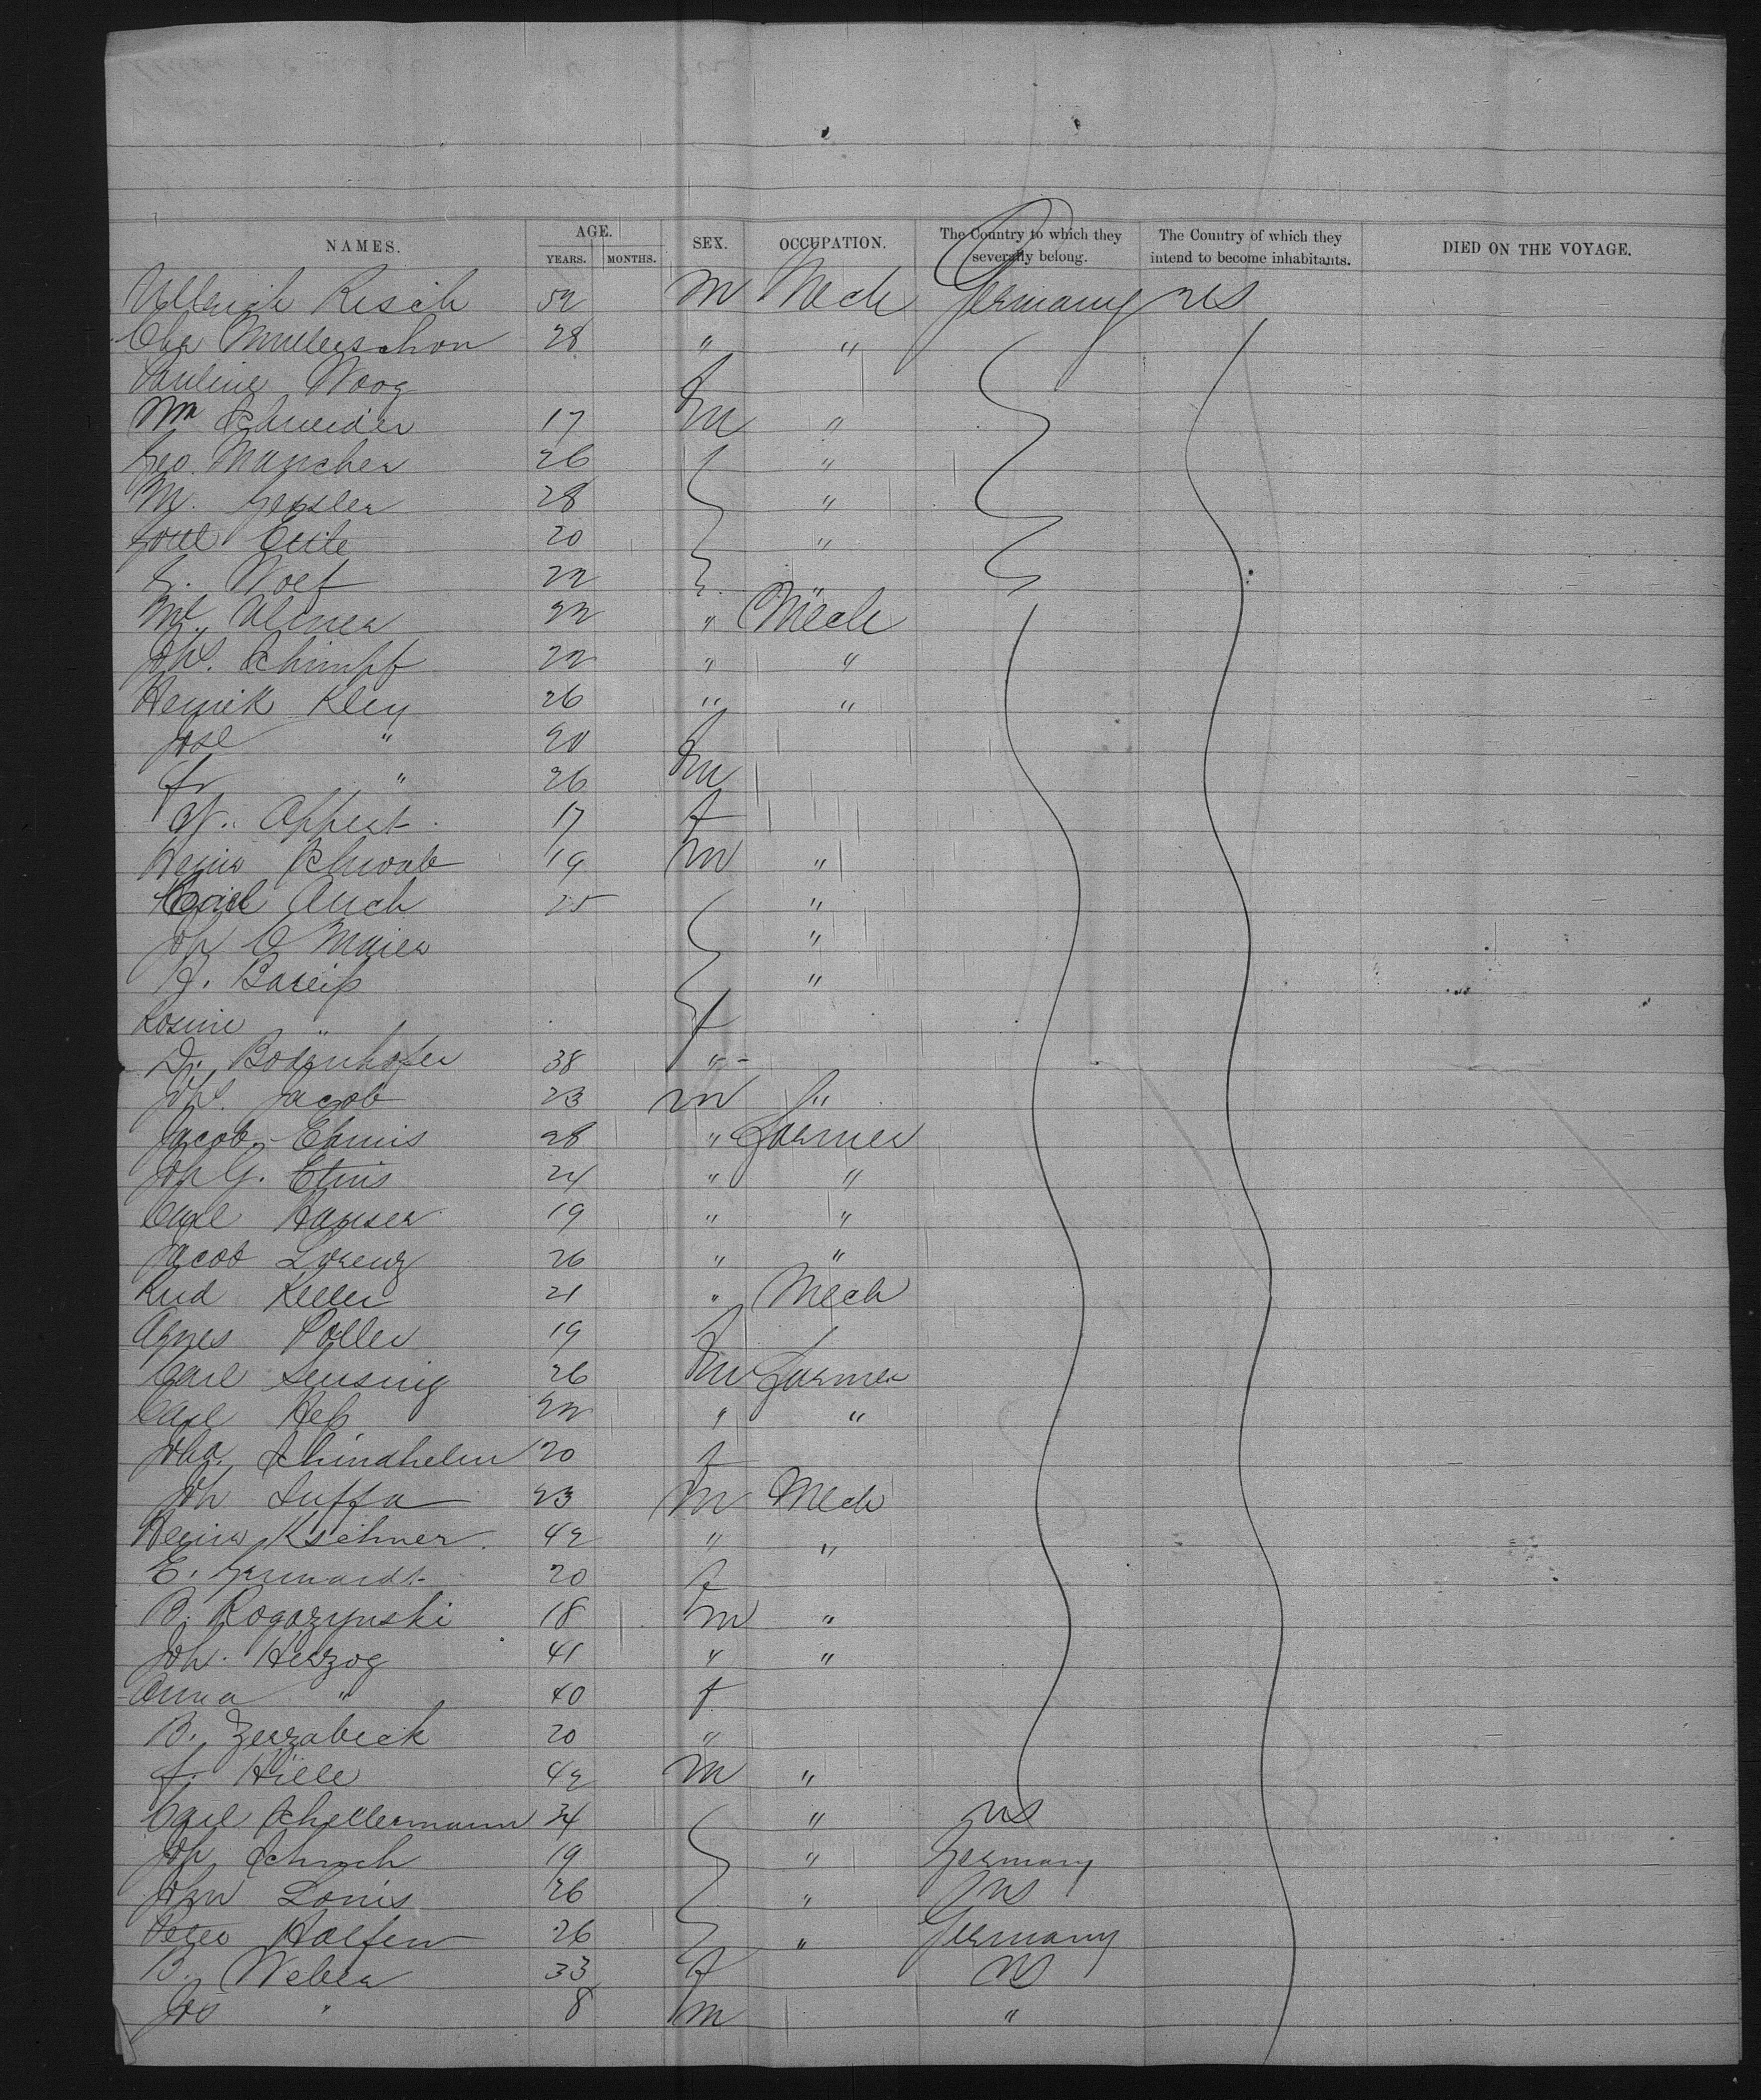 NAMES. AGE. YEARS. MONTHS. SEX. OCCUPATION. The Country to which they severally belong. The Country of which they intend to become inhabitants. DIED ON THE VOYAGE.
Ullrich Resch 52 m Mech Germany US
Chr Mullerschon 28 " "
Pauline Woog f
Wm Schneider 17 m "
Geo. Mancher 26 "
M. Gessler 28 "
20 "
G. Wolf 22 "
Ml. Ulmer 22 " Mech
Jhs. Schimpf 22 " "
Henrik Kley 26 " "
Jose " 20 f
Fr " 26 m
W. Oppert 17 f
Heinr Schwab 19 m "
Carl Auch 25 "
Joh C Maier "
J. Bareiß "
Rosine " f
D. Bodenhofer 38 "
Jhs. Jacob 23 m "
Jacob Ehmis 28 " Farmer
Joh G. Ehnis 24 " "
Carl Hauser 19 " "
Jacob Lorenz 26 " "
Rud Keller 21 " Mech
Agnes Poller 19 f
Carl Sensing 26 m Farmer
Carl Heß 22 " "
Joha. Schindhelm 20 f
Joh Luffa 23 m Mech
Heinr Kschner 42 " "
E. 20 f
B. Rogozynski 18 m "
Joh. Herzog 41 " "
Anna " 40 f
B. Zerzabeck 20 "
F. Hille 42 m "
Carl Schellermann 34 " US
Joh Schuch 19 " Germany
John Louis 26 " US
Peter Halfen 26 " Germany
B. Weber 33 f US
Jos " 8 m "